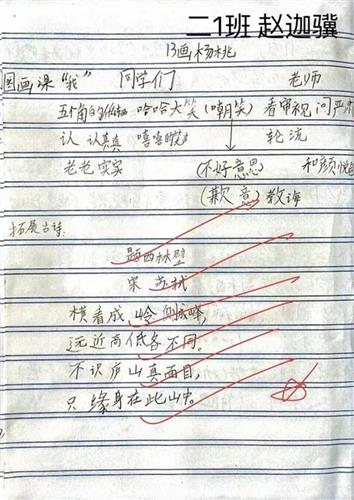 二1班 赵迦骥
13画杨桃
图画课“我” 同学们 老师
五角的 哈哈大笑(嘲笑) 看审视问严
认认真真 嘻嘻的 轮流
老老实实 (不好意思) 和颜悦色
(歉意)教诲
拓展古诗:
题西林壁
宋 苏轼
横看成岭侧成峰,
远近高低各不同。
不识庐山真面目,
只缘身在此山中。